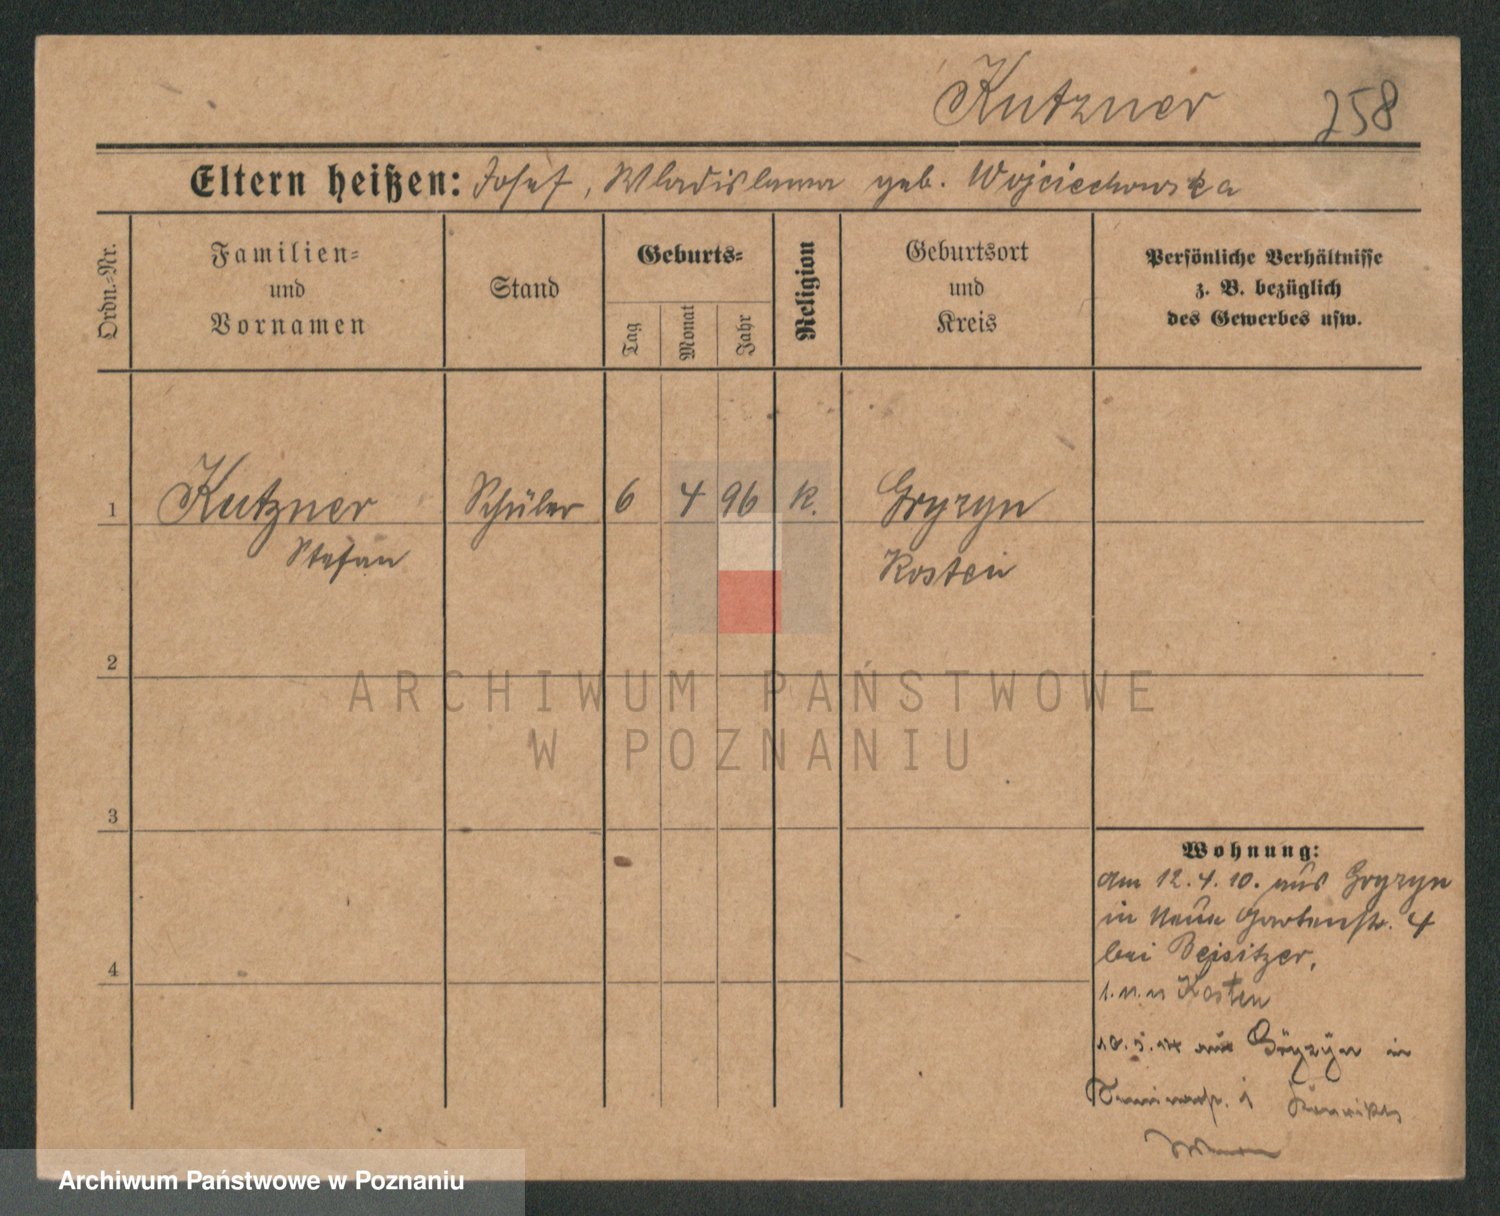 Kutzner 258
Eltern heißen: Josef, Wladislawa geb. Wojciechowska
Ordn.-Nr.
Familien-
und
Vornamen
Stand
Geburts-
Tag
Monat
Jahr
Religion
Geburtsort
und
Kreis
Persönliche Verhältnisse
z. B. bezüglich
des Gewerbes usw.
1 Kutzner Schüler 6 4 96 k. Gryzyn
Stefan Kosten
2
ARCHIWUM PAŃSTWOWE
W POZNANIU
3
Wohnung:
am 12.4.10. aus Gryzyn
in Neue Gartenstr. 4
bei Beisitzer,
Kosten
aus Gryzyn in
4
Archiwum Państwowe w Poznaniu